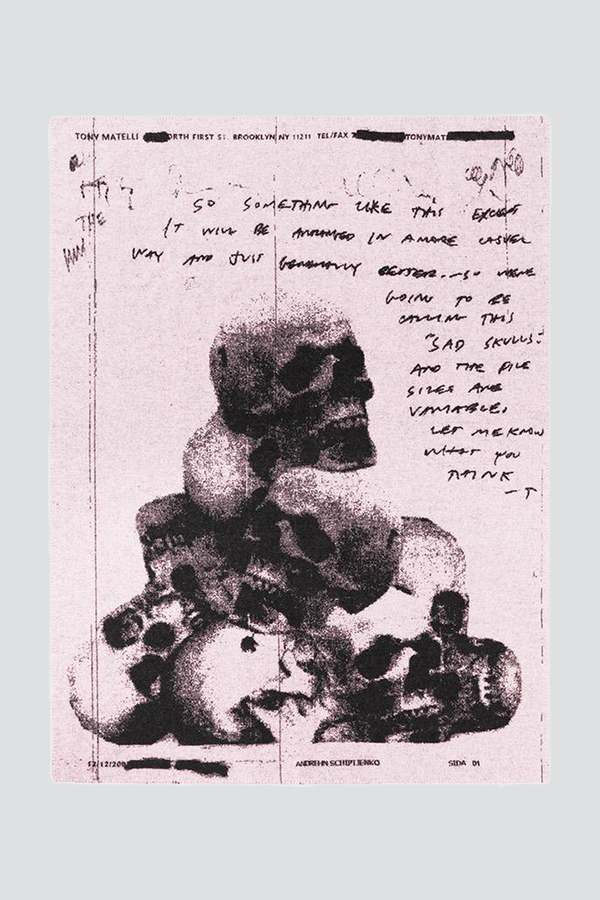 TONY MATELLI ORTH FIRST ST. BROOKLYN NY 11211 TEL/FAX TONYMAT
THE
SO SOMETHING LIKE THIS EXCEPT
IT WILL BE ARRANGED IN A MORE CASUAL
WAY AND JUST GENERALLY BETTER. - SO WERE
GOING TO BE
CALLING THIS
"SAD SKULLS."
AND THE PILE
SIZES ARE
VARIABLE.
LET ME KNOW
WHAT YOU
THINK
- T
12/12/200 ANDREHN SCHIPTJENKO SIDA 01